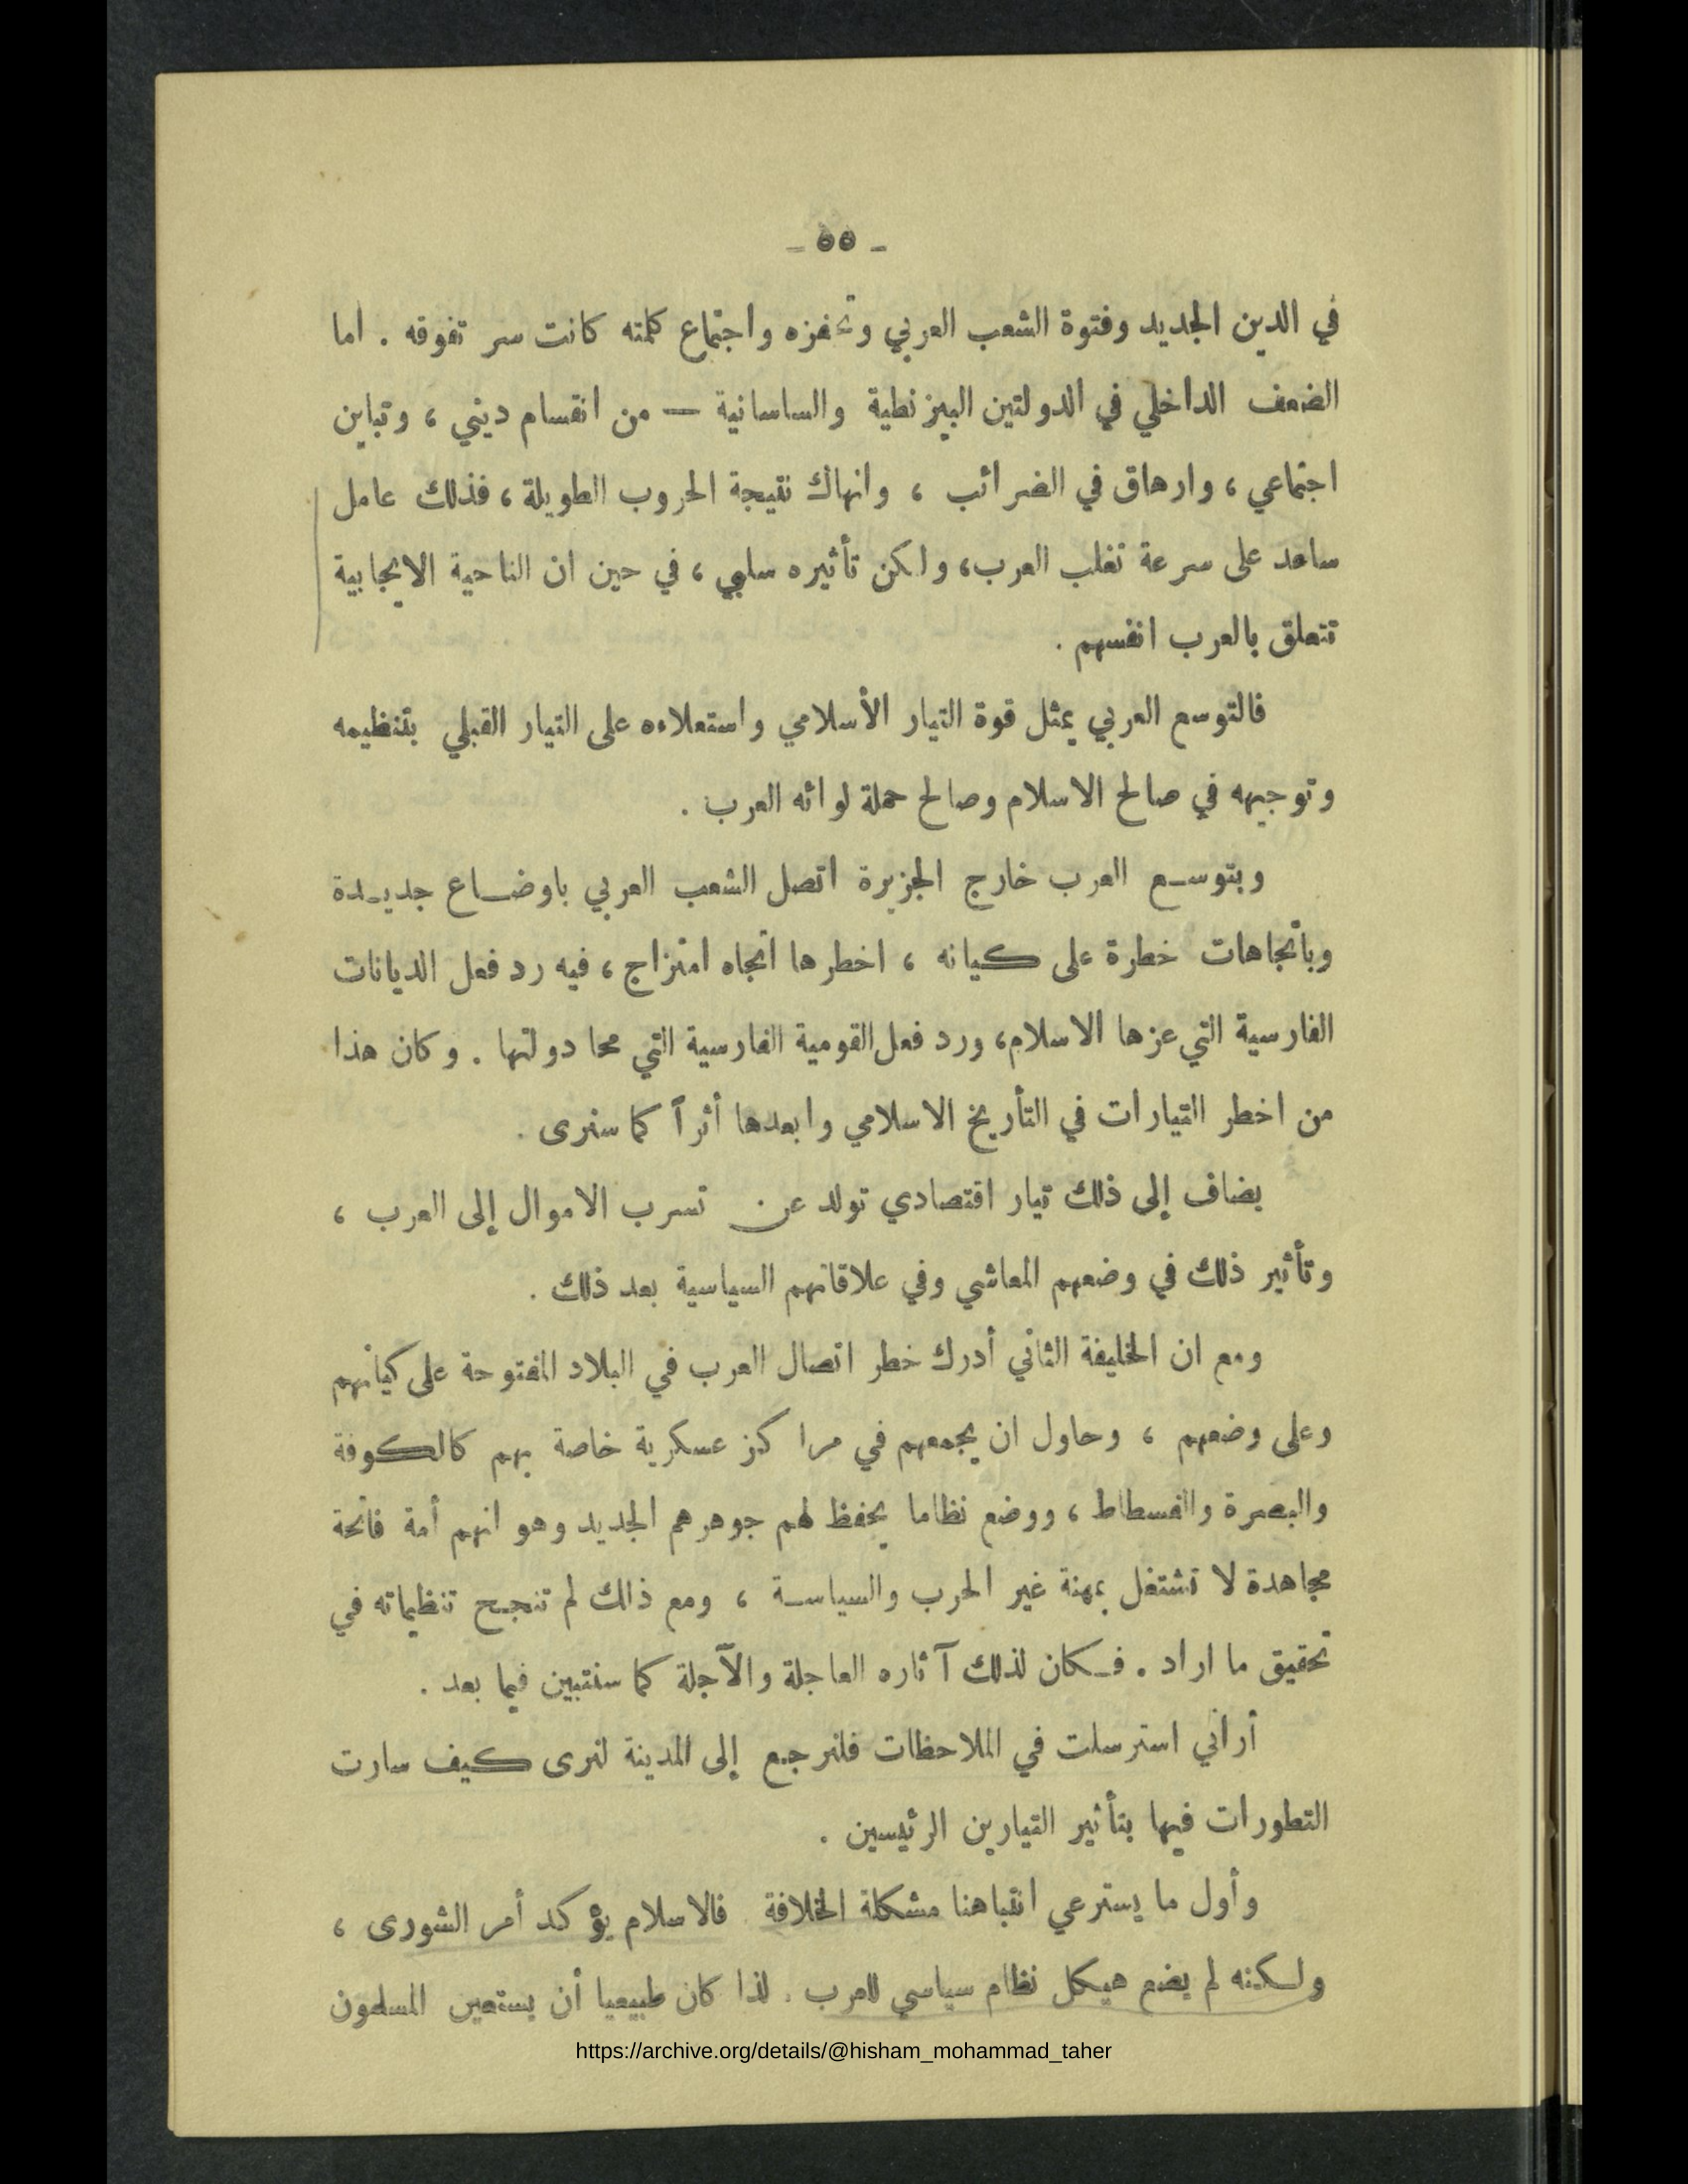 - ٥٥ -
في الدين الجديد وفتوة الشعب العربي وتحفزه واجتماع كلمته كانت سر تفوقه . اما
الضعف الداخلي في الدولتين البيزنطية والساسانية — من انقسام ديني ، وتباين
اجتماعي ، وارهاق في الضرائب ، وانهاك نتيجة الحروب الطويلة ، فذلك عامل
ساعد على سرعة تغلب العرب، ولكن تأثيره سلبي ، في حين ان الناحية الايجابية
تتعلق بالعرب انفسهم .
فالتوسع العربي يمثل قوة التيار الأسلامي واستعلاءه على التيار القبلي بتنظيمه
وتوجيهه في صالح الاسلام وصالح حملة لوائه العرب .
وبتوسـع العرب خارج الجزيرة اتصل الشعب العربي باوضـاع جديـدة
وبأتجاهات خطرة على كيانه ، اخطرها اتجاه امتزاج ، فيه رد فعل الديانات
الفارسية التي عزها الاسلام، ورد فعل القومية الفارسية التي محا دولتها . وكان هذا
من اخطر التيارات في التأريخ الاسلامي وابعدها أثراً كما سنرى .
يضاف إلى ذلك تيار اقتصادي تولد عن تسرب الاموال إلى العرب ،
وتأثير ذلك في وضعهم المعاشي وفي علاقاتهم السياسية بعد ذلك .
ومع ان الخليفة الثاني أدرك خطر اتصال العرب في البلاد المفتوحة على كيانهم
وعلى وضعهم ، وحاول ان يجمعهم في مراكز عسكرية خاصة بهم كالكوفة
والبصرة والفسطاط ، ووضع نظاما يحفظ لهم جوهرهم الجديد وهو انهم أمة فاتحة
مجاهدة لا تشتغل بمهنة غير الحرب والسياسـة ، ومع ذلك لم تنجـح تنظيماته في
تحقيق ما اراد . فـكان لذلك آثاره العاجلة والآجلة كما سنتبين فيما بعد .
أراني استرسلت في الملاحظات فلنرجع إلى المدينة لنرى كيف سارت
التطورات فيها بتأثير التيارين الرئيسين .
وأول ما يسترعي انتباهنا مشكلة الخلافة فالاسلام يؤكد أمر الشورى ،
ولـكنه لم يضع هيكل نظام سياسي للعرب . لذا كان طبيعيا أن يستعين المسلمون
https://archive.org/details/@hisham_mohammad_taher